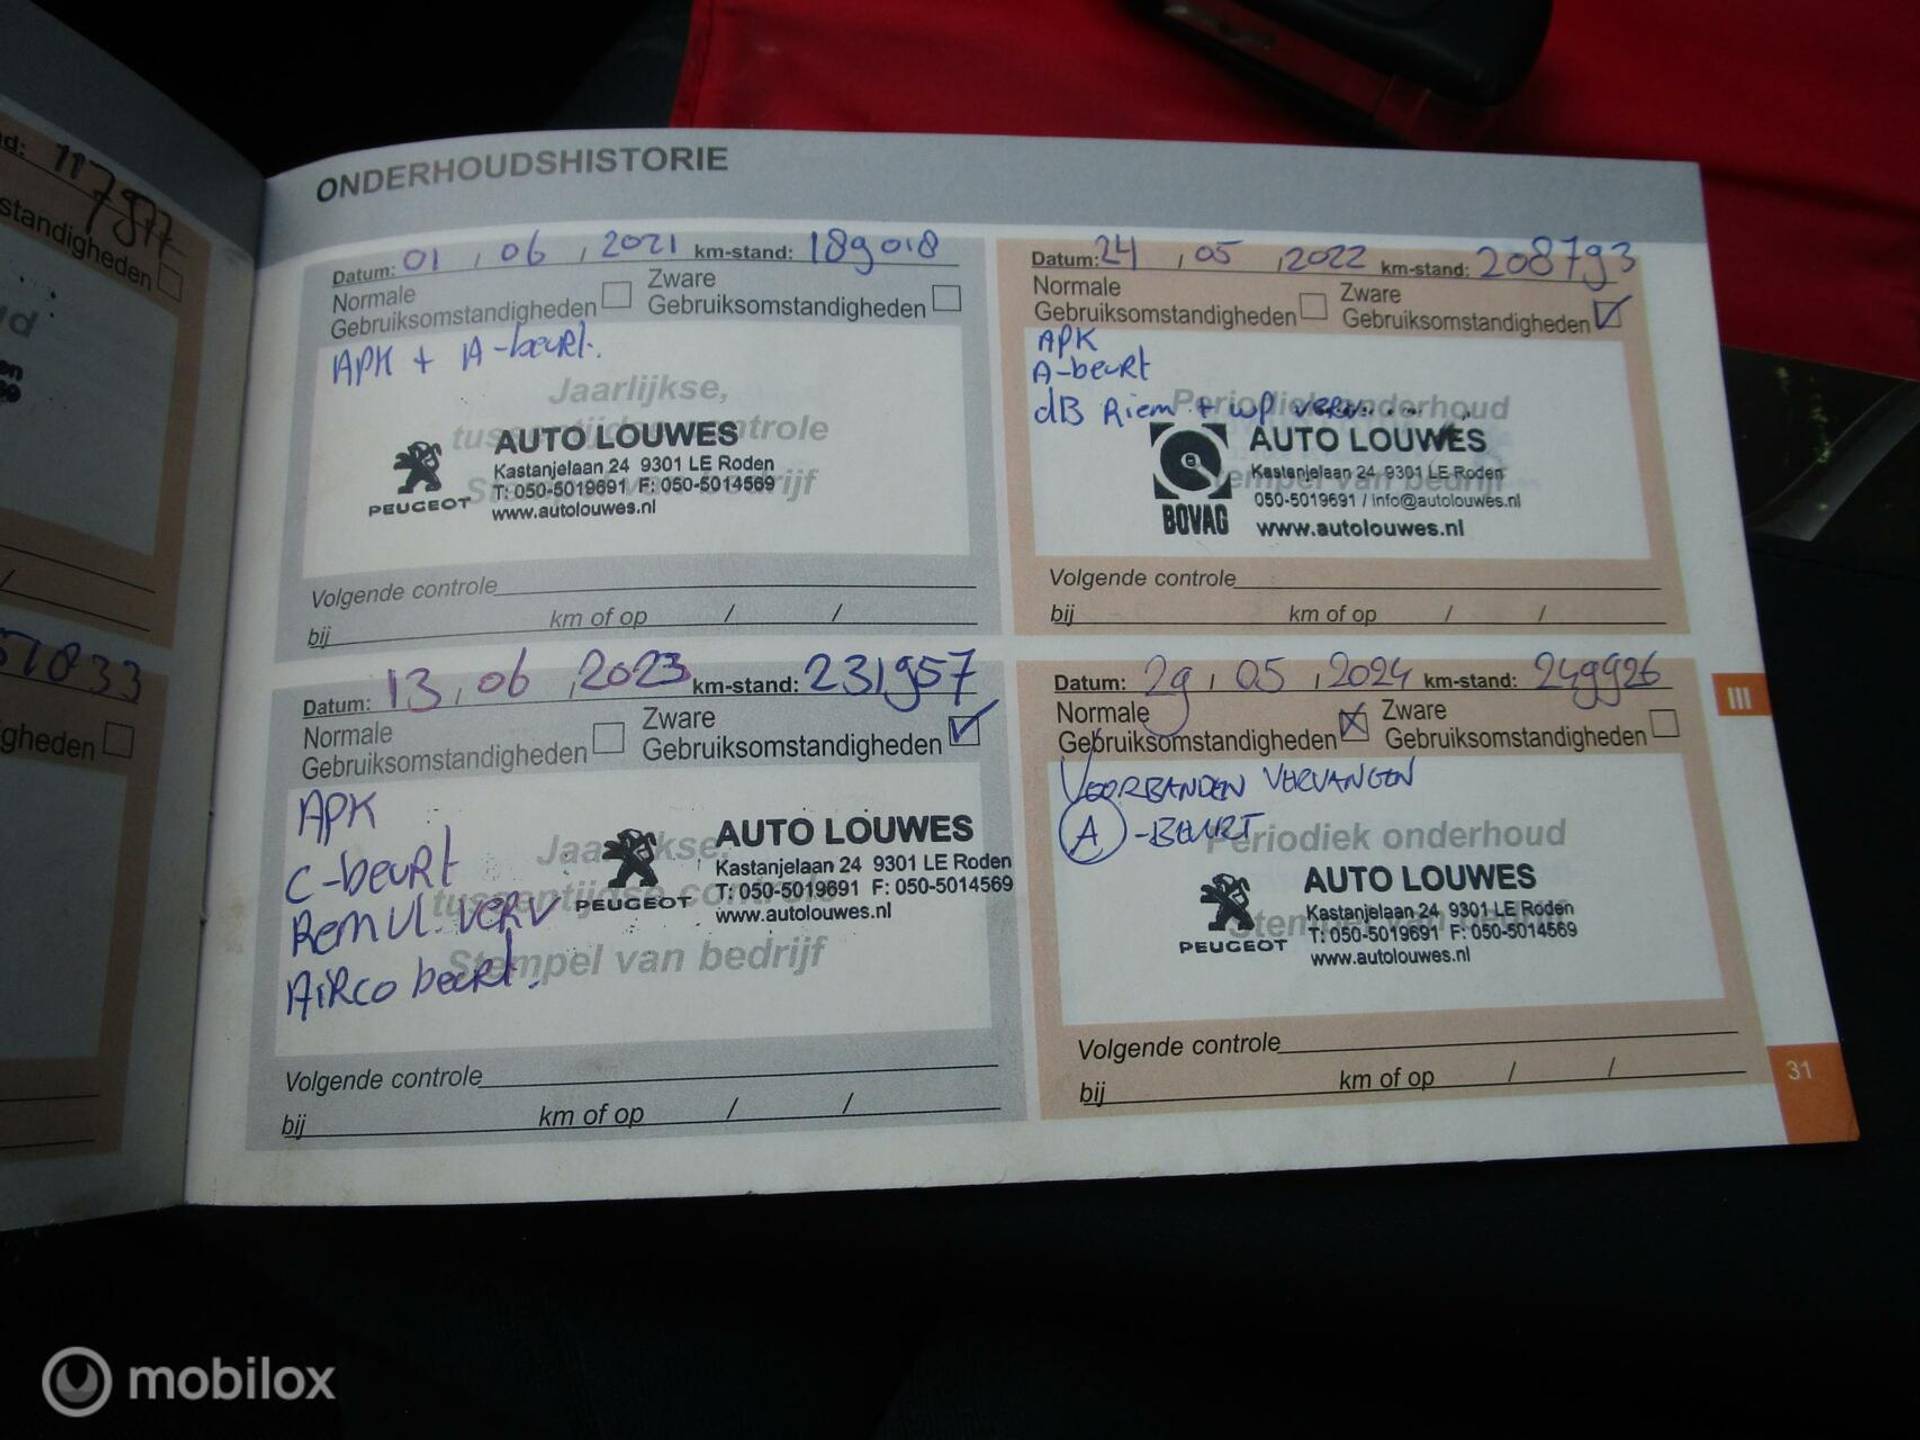 117877
standigheden
51833
gheden
ONDERHOUDSHISTORIE
Datum: 01 / 06 / 2021 km-stand: 189018
Normale Gebruiksomstandigheden
Zware Gebruiksomstandigheden
APK + A-beurt.
Jaarlijkse,
tussentijdse controle
Stempel van bedrijf
AUTO LOUWES
Kastanjelaan 24 9301 LE Roden
T: 050-5019691 F: 050-5014569
PEUGEOT
www.autolouwes.nl
Volgende controle
bij km of op / /
Datum: 24 / 05 / 2022 km-stand: 208793
Normale Gebruiksomstandigheden
Zware Gebruiksomstandigheden
APK
A-beurt
dB Riem + wp verv....
Periodiek onderhoud
Stempel van bedrijf
AUTO LOUWES
Kastanjelaan 24 9301 LE Roden
050-5019691 / info@autolouwes.nl
BOVAG
www.autolouwes.nl
Volgende controle
bij km of op / /
Datum: 13 / 06 / 2023 km-stand: 231957
Normale Gebruiksomstandigheden
Zware Gebruiksomstandigheden
APK
C-beurt
Remvl. verv
Airco beurt.
Jaarlijkse,
tussentijdse controle
Stempel van bedrijf
AUTO LOUWES
Kastanjelaan 24 9301 LE Roden
T: 050-5019691 F: 050-5014569
PEUGEOT
www.autolouwes.nl
Volgende controle
bij km of op / /
Datum: 29 / 05 / 2024 km-stand: 249926
Normale Gebruiksomstandigheden
Zware Gebruiksomstandigheden
VOORBANDEN VERVANGEN
A -BEURT
Periodiek onderhoud
Stempel van bedrijf
AUTO LOUWES
Kastanjelaan 24 9301 LE Roden
T: 050-5019691 F: 050-5014569
PEUGEOT
www.autolouwes.nl
Volgende controle
bij km of op / /
III
31
mobilox